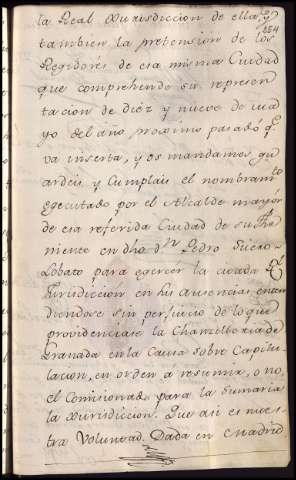 la Real Xurisdiccion de ella, y
254
tambien la pretension de los
Regidores de esa misma Ciudad
que comprehende su represen
tacion de diez y nueve de ma
yo del año proximo pasado q.e
va inserta, y os mandamos gu
ardeis y Cumplais el nombram.to
egecutado por el Alcalde mayor
de esa referida Ciudad de su The
niente en dho d.n Pedro Suero
Lobato para egercer la
Jurisdiccion en sus ausencias enten
diendose sin perjuicio de lo que
providenciase la Chancilleria de
Granada en la Causa sobre Capitu
lacion, en orden á resuma, o no,
el Comisionado para la Sumaria
la Xurisdiccion. Que asi es nues
tra Voluntad. Dada en Madrid